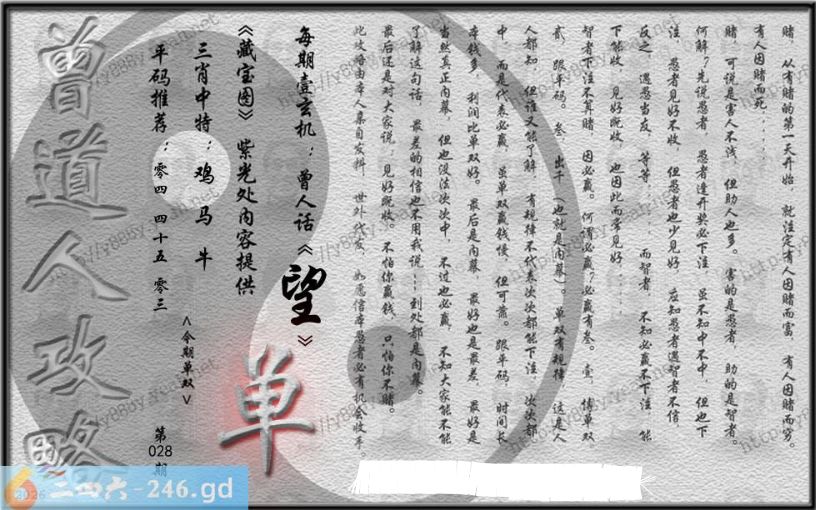 赌，从有赌的第一天开始，就注定有人因赌而富，有人因赌而穷。
有人因赌而死.....
赌，可说是害人不浅，但助人也多。害的是愚者，助的是智者。
何解？先说愚者，愚者逢开奖必下注，虽不知中不中，但也下
注，愚者见好不收，但愚者也少见好，应知愚者遇智者不信，
反之，遇愚当友，等等......而智者，不知必赢不下注，能
下能收，见好既收，也因此而常见好......
智者下注不算赌，因必赢。何谓必赢？必赢有叁。壹，情单双
贰，跟单码。叁，出千（也就是内幕）。单双有规律，这是人
人都知，但谁又能了解，有规律不代表次次都能下注，次次都
中，而是代表必赢，虽单双赢钱慢，但可靠。跟单码，时间长
本钱多，利润比单双好。最后是内幕，最好也是最差，最好是
当然真正内幕，但也没法次次中，不过也必赢，不知大家能不能
了解这句话，最差的相信也不用我说...到处都是内幕。
最后还是对大家说：见好既收。不怕你赢钱，只怕你不赌。
此攻略由本人亲自发料，世外代发，如愿信本愚者必有机会收手。
每期壹玄机：曾人话《望》
《藏宝图》紫光处内容提供
单
三肖中特：鸡 马 牛
<今期单双>
平码推荐：零四 四十五 零三
第028期
曾道人攻略
二四六-246.gd
2026